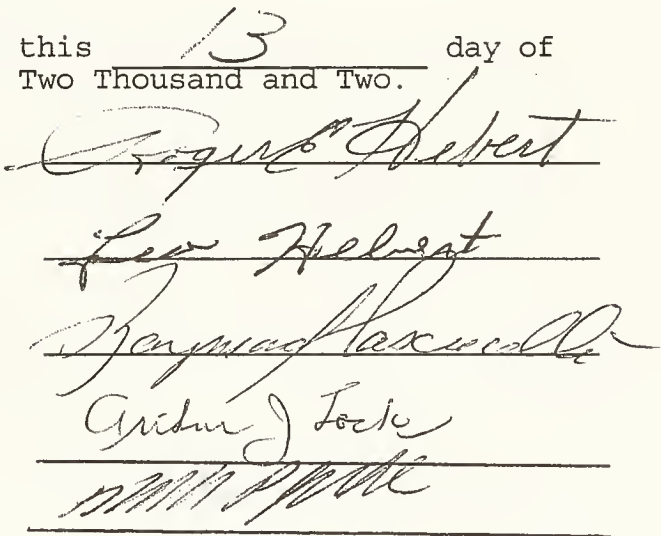 this 13 day of
Two Thousand and Two.
Roger E Hebert
Leo Hebert
Raymond
Arthur J Locke